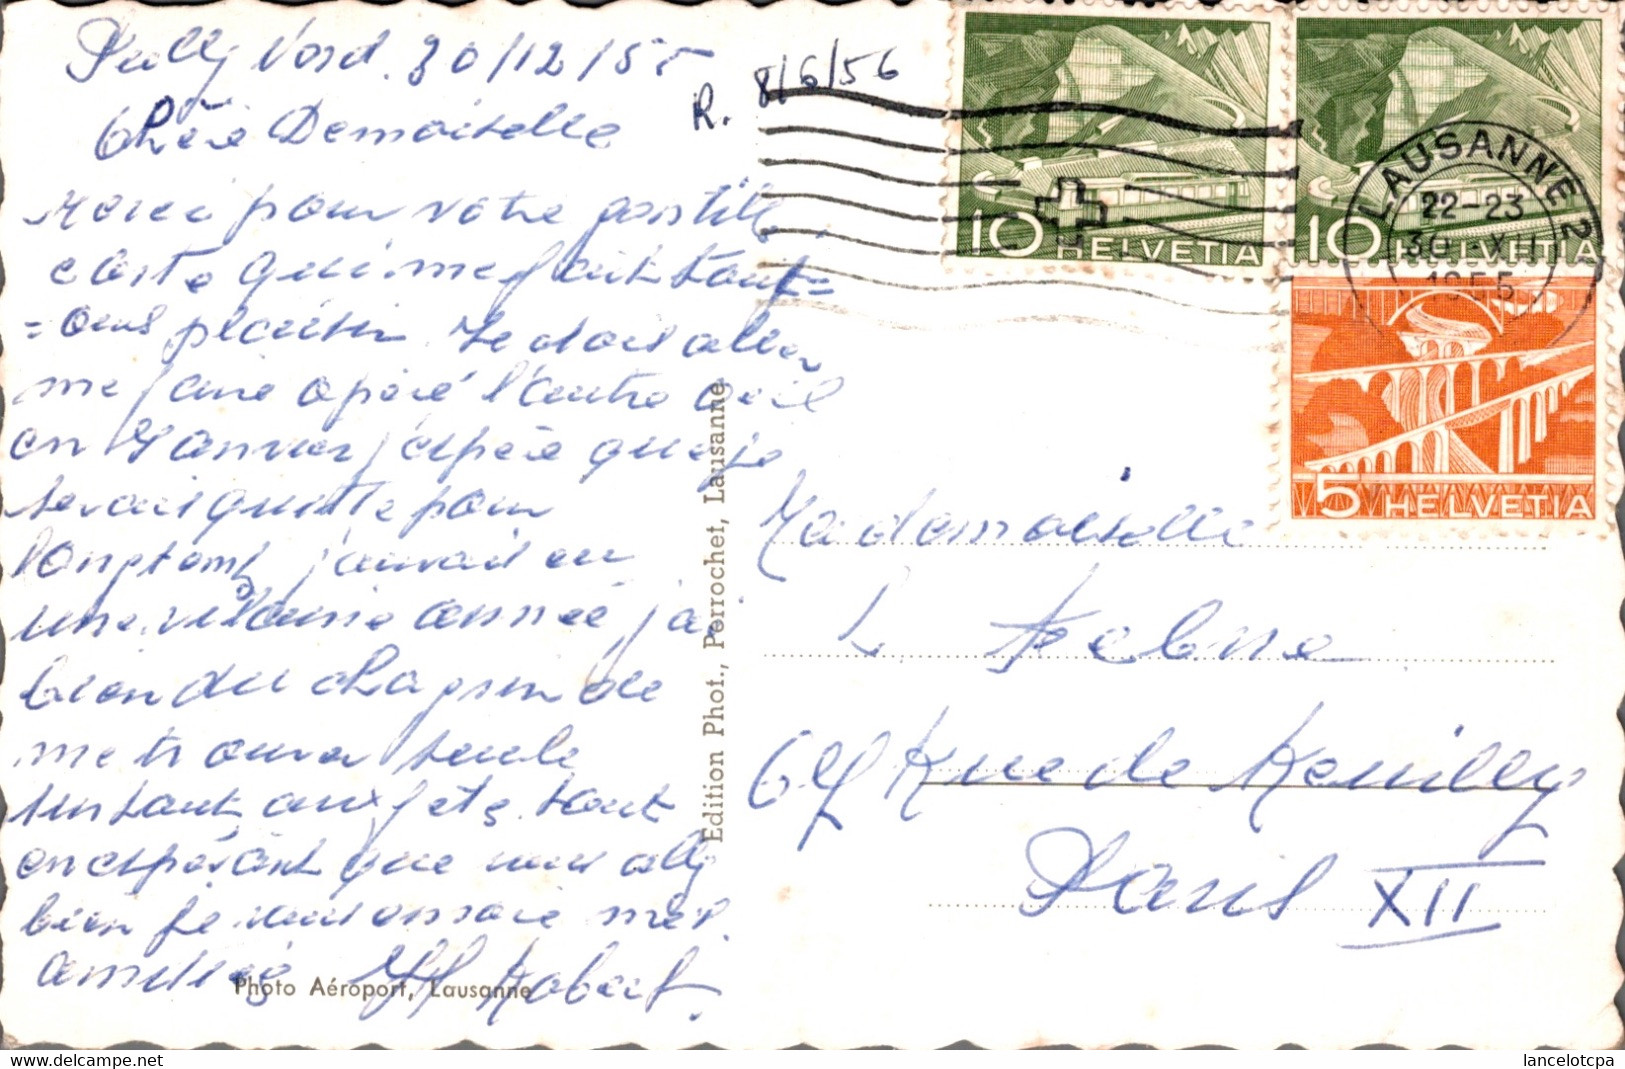 Pully Nord 30/12/55
R. 8/6/56
Chère Demoiselle
Merci pour votre gentille
carte qui me fait tout=
=ours plaisir. Je dois aller
me faire opéré l'autre œil
en Janvier j'espère que je
serais quitte pour
longtemps j'aurais eu
une vilaine année j'ai
bien du chagrin de
me trouver seule
surtout aux fêtes. tout
en espérant que vous allez
bien je vous envoie mes
amitiés Robert.
Photo Aéroport, Lausanne
Edition Phot., Perrochet, Lausanne
10 HELVETIA
10 HELVETIA
5 HELVETIA
LAUSANNE 2
22-23
30.XII
1955
Mademoiselle
L
Rue de Reuilly
Paris XII
lancelotcpa